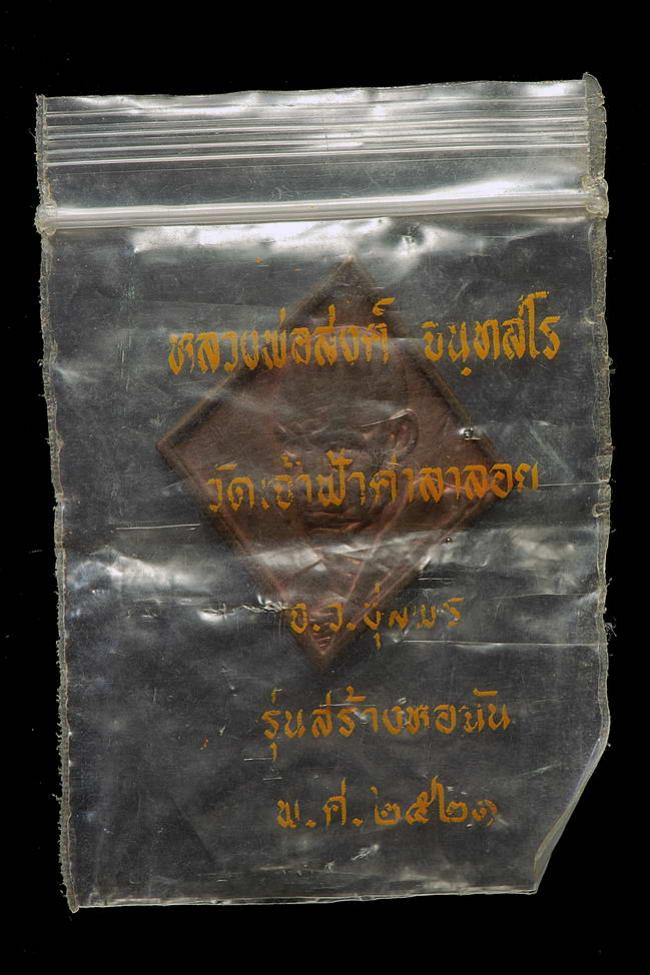 หลวงพ่อสงค์ จนฺทสโร
วัดเจ้าฟ้าศาลาลอย
จ.ว.ชุมพร
รุ่นสร้างหอฉัน
พ.ศ.๒๕๒๑